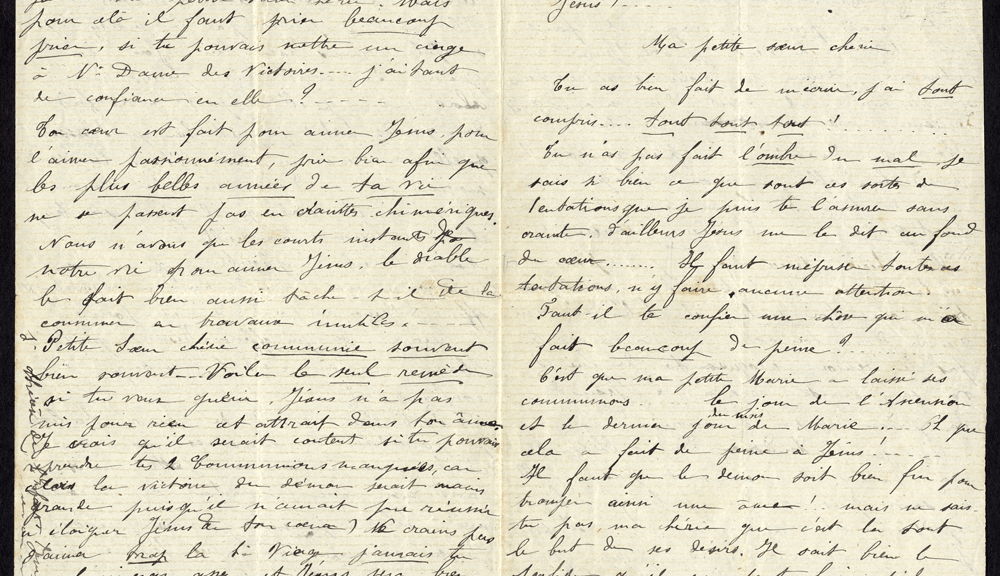 pour cela il faut prier beaucoup
prier, si tu pouvais mettre un cierge
à Ne Dame des Victoires.... j'ai tant
de confiance en elle ?.....
Ton cœur est fait pour aimer Jésus, pour
l'aimer passionnément, prie bien afin que
les plus belles années de ta vie
ne se passent pas en craintes chimériques.
Nous n'avons que les courts instants de
notre vie pour aimer Jésus, le diable
le sait bien aussi tâche-t-il de la
consumer en travaux inutiles.....
Petite sœur chérie communie souvent
bien souvent... Voilà le seul remède
si tu veux guérir, Jésus n'a pas
mis pour rien cet attrait dans ton âme
Je crois qu'il serait content si tu pouvais
reprendre tes 2 Communions manquées, car
alors la victoire du démon serait moins
grande puisqu'il n'aurait pu réussir
à éloigner Jésus de ton cœur) Ne crains pas
d'aimer trop la Ste Vierge jamais tu
et Jésus sera bien
Jésus !.....
Ma petite sœur chérie
Tu as bien fait de m'écrire, j'ai tout
compris.... tout tout tout !.....
Tu n'as pas fait l'ombre du mal, je
sais si bien ce que sont ces sortes de
tentations que je puis te l'assurer sans
crainte, d'ailleurs Jésus me le dit au fond
du cœur....... Il faut mépriser toutes ces
tentations, n'y faire aucune attention.
Faut-il te confier une chose qui m'a
fait beaucoup de peine ?.....
C'est que ma petite Marie a laissé ses
communions. le jour de l'Ascension
et le dernier jour du mois de Marie..... Oh que
cela a fait de peine à Jésus !.....
Il faut que le démon soit bien fin pour
tromper ainsi une âme !... mais ne sais-
tu pas, ma chérie que c'est là tout
le but de ses désirs. Il sait bien le